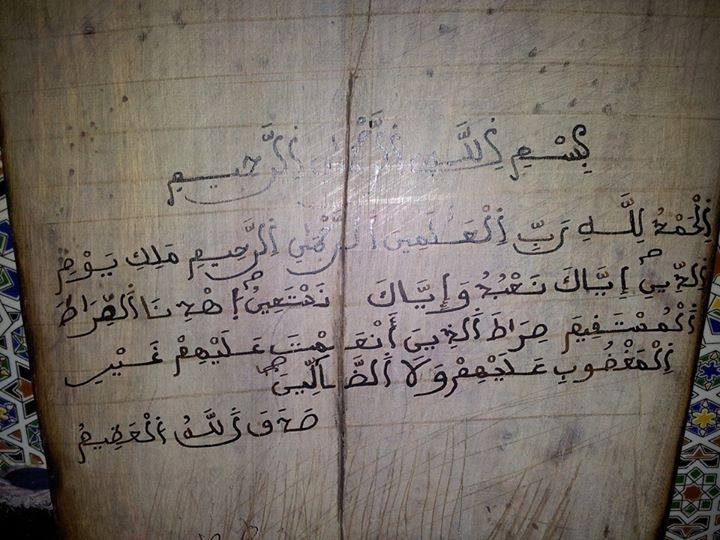 بِسْمِ اِللَّهِ اِلرَّحْمَٰنِ اِلرَّحِيمِ
اِلْحَمْدُ لِلَّهِ رَبِّ اِلْعَٰلَمِينَ اَلرَّحْمَٰنِ اِلرَّحِيمِ مَلِكِ يَوْمِ
اِلدِّينِ إِيَّاكَ نَعْبُدُ وَإِيَّاكَ نَسْتَعِينُ اِهْدِنَا اَلصِّرَاطَ
اَلْمُسْتَقِيمَ صِرَاطَ اَلذِينَ أَنْعَمْتَ عَلَيْهِمْ غَيْرِ
اِلْمَغْضُوبِ عَلَيْهِمْ وَلَا اَلضَّالِّينَ
صَدَقَ اَللَّهُ اُلْعَظِيمُ